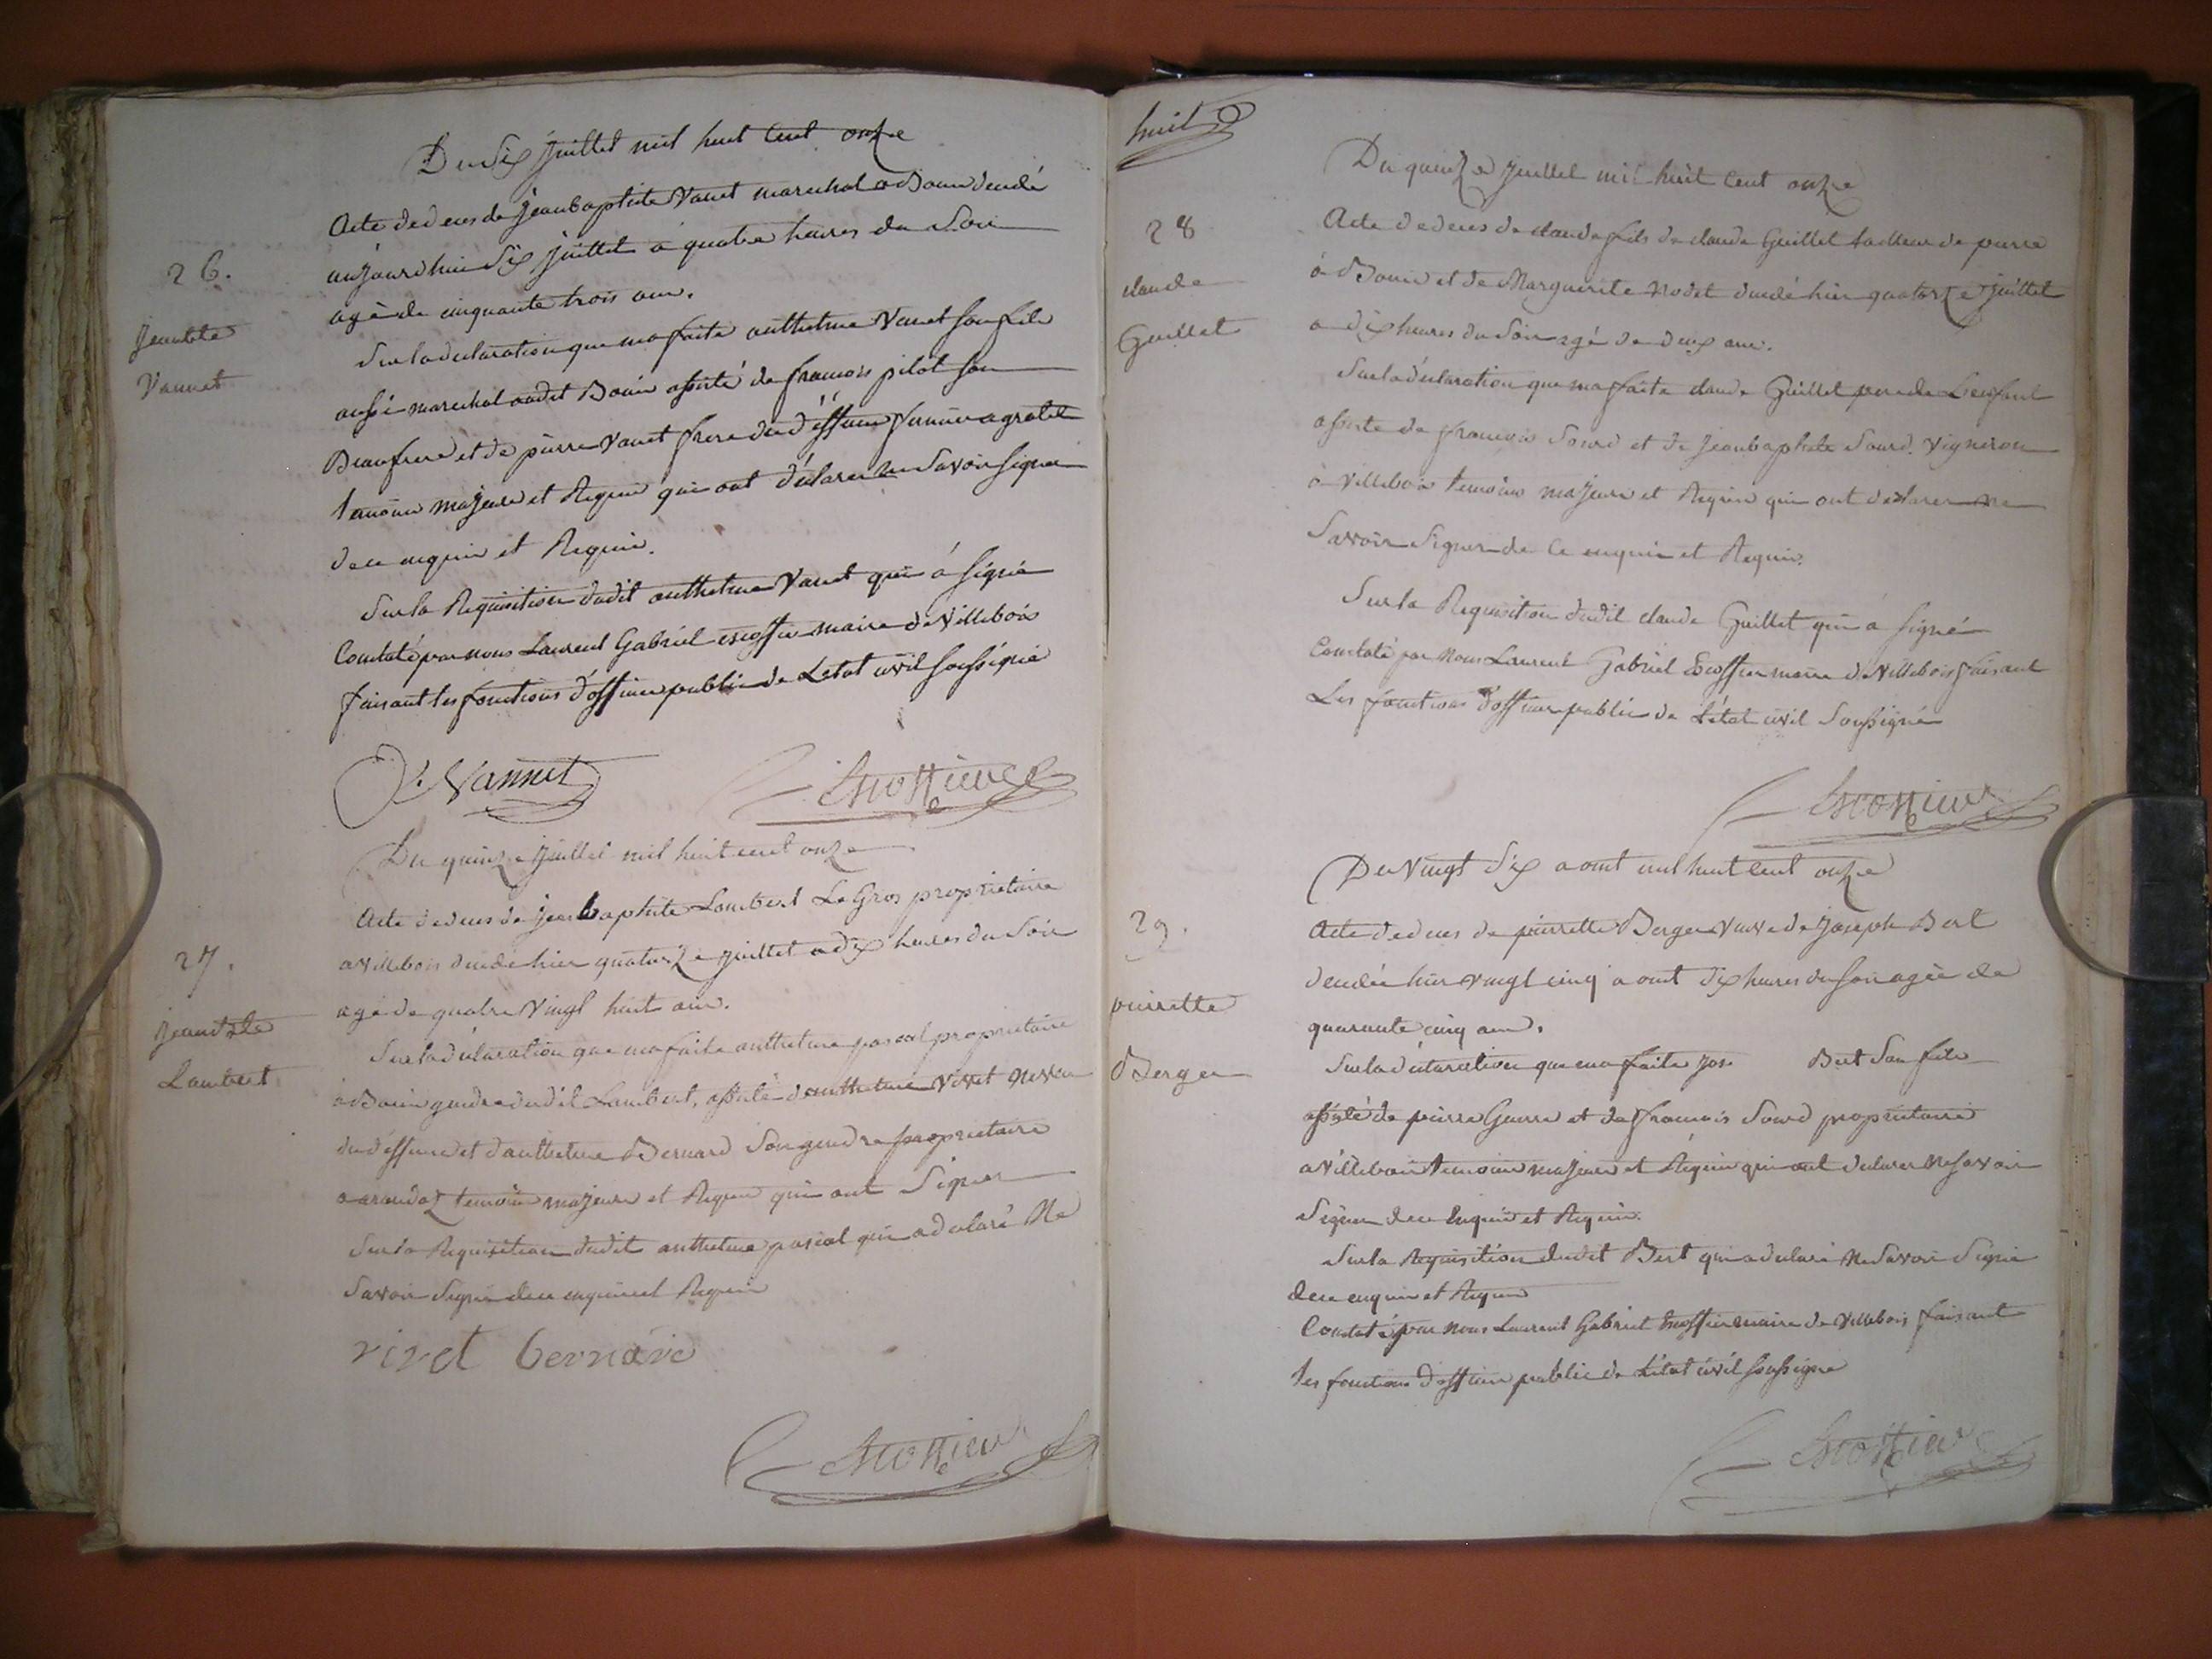 Du Six juillet mil huit Cent onze
26.
Jeanbte
Vannet
Acte de deces de Jeanbaptiste Vanet marechal a Bouis decedé
aujourdhui Six juillet à quatre heures du Soir
agé de cinquante trois ans.
Sur la declaration que ma faite anthelme Vanet son fils
aussi marechal audit Bouis assisté de francois pilot son
Beaufrere et de pierre Vanet frere du deffunt
temoins majeurs et Requis qui ont declarer ne Savoir Signer
de ce enquis et Requis.
Sur la Requisition dudit anthelme Vanet qui à Signé
Constaté par nous Laurent Gabriel escoffier maire de Villebois
faisant les fonctions d'officier public de Letat civil Soussigné
Vannet
Escoffier
Du quinze juillet mil huit cent onze
27.
jeanbte
Lambert
Acte de deces de jeanbaptiste Lambert Le Gros proprietaire
a Villebois decedé hier quatorze juillet a dix heures du Soir
agé de quatre Vingt huit ans.
Sur la declaration que ma faite anthelme pascal proprietaire
à Bouis gendre dudit Lambert, assisté danthelme Rivet neveu
du deffunt et danthelme Bernard Son gendre proprietaire
a arandaz temoins majeurs et Requis qui ont Signer
Sur la Requisition dudit anthelme pascal qui a declaré Ne
Savoir Signé de ce enquis et Requis
rivet bernard
Escoffier
huit
Du quinze juillet mil huit Cent onze
28
claude
Guillet
Acte de deces de claude fils de claude Guillet tailleur de pierre
à Bouis et de Marguerite Nodet decedé hier quatorze juillet
a dix heures du Soir agé de deux ans.
Sur la declaration que ma faite claude Guillet pere de L'enfant
assisté de francois Sourd et de jeanbaptiste Sourd Vigneron
à Villebois temoins majeurs et Requis qui ont declarer ne
Savoir Signer de Ce enquis et Requis.
Sur la Requisition dudit claude Guillet qui à Signé
Constaté par Nous Laurent Gabriel Escoffier maire de Villebois faisant
Les fonctions d'officier public de L'état civil Soussigné
Escoffier
Du Vingt Six aout mil huit cent onze
29.
pierrette
Berger
Acte de deces de pierrette Berger veuve de Joseph Bert
decedée hier vingt cinq aout Six heures du Soir agée de
quarante cinq ans.
Sur la declaration que ma faite jos. Bert Son fils
assisté de pierre Guerre et de francois Sourd proprietaire
a Villebois temoins majeurs et Requis qui ont declarer Ne Savoir
Signer de ce Enquis et Requis.
Sur la Requisition dudit Bert qui a declaré Ne Savoir Signé
de ce enquis et Requis
Constaté par nous Laurent Gabriel Escoffier maire de Villebois faisant
les fonctions d'officier public de L'état civil Soussigné
Escoffier